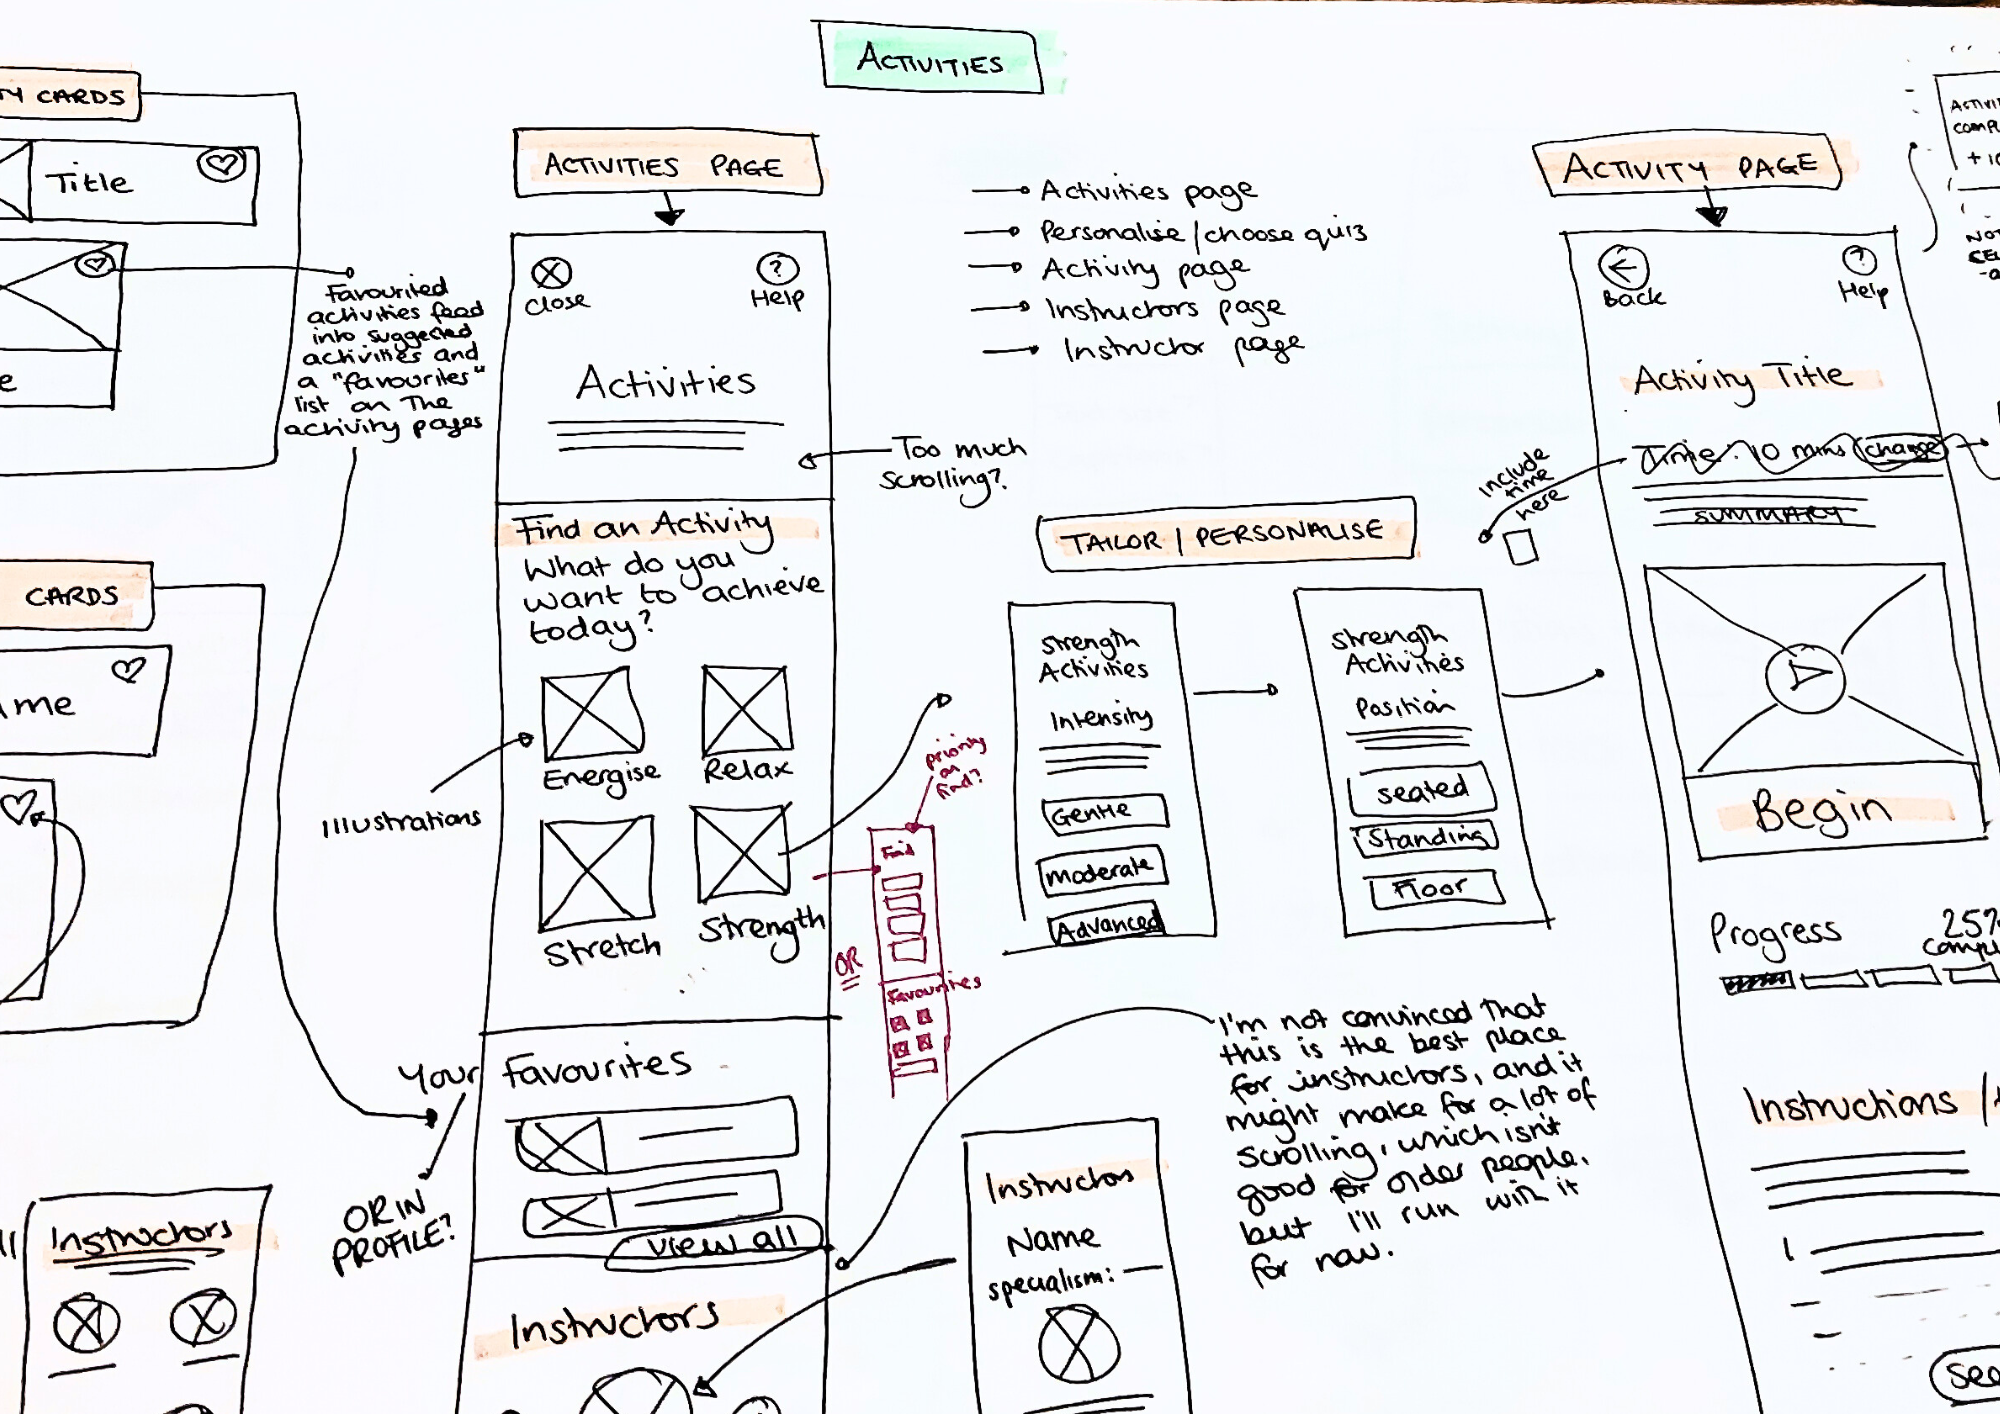 ACTIVITIES
CARDS
Title
Favourited
activities feed
into suggested
activities and
a "favourites"
list on The
activity pages
CARDS
Illustrations
Your
OR IN
PROFILE?
Instructors
ACTIVITIES PAGE
Close
Help
Activities
Too much
scrolling?
Find an Activity
What do you
want to achieve
today?
Energise
Relax
Stretch
Strength
Favourites
View all
Instructors
Activities page
Personalise/choose quiz
Activity page
Instructors page
Instructor page
TAILOR | PERSONALISE
Strength
Activities
Intensity
Gentle
Moderate
Advanced
Strength
Activities
Position
seated
Standing
Floor
priority
on
find?
Find
OR
Favourites
I'm not convinced that
this is the best place
for instructors, and it
might make for a lot of
scrolling, which isn't
good for older people,
but I'll run with it
for now.
Instructor
Name
specialism:
ACTIVITY PAGE
Back
Help
Activity Title
Time: 10 mins change
include
time
here
SUMMARY
Begin
Progress
25%
Instructions /
1
See
+10